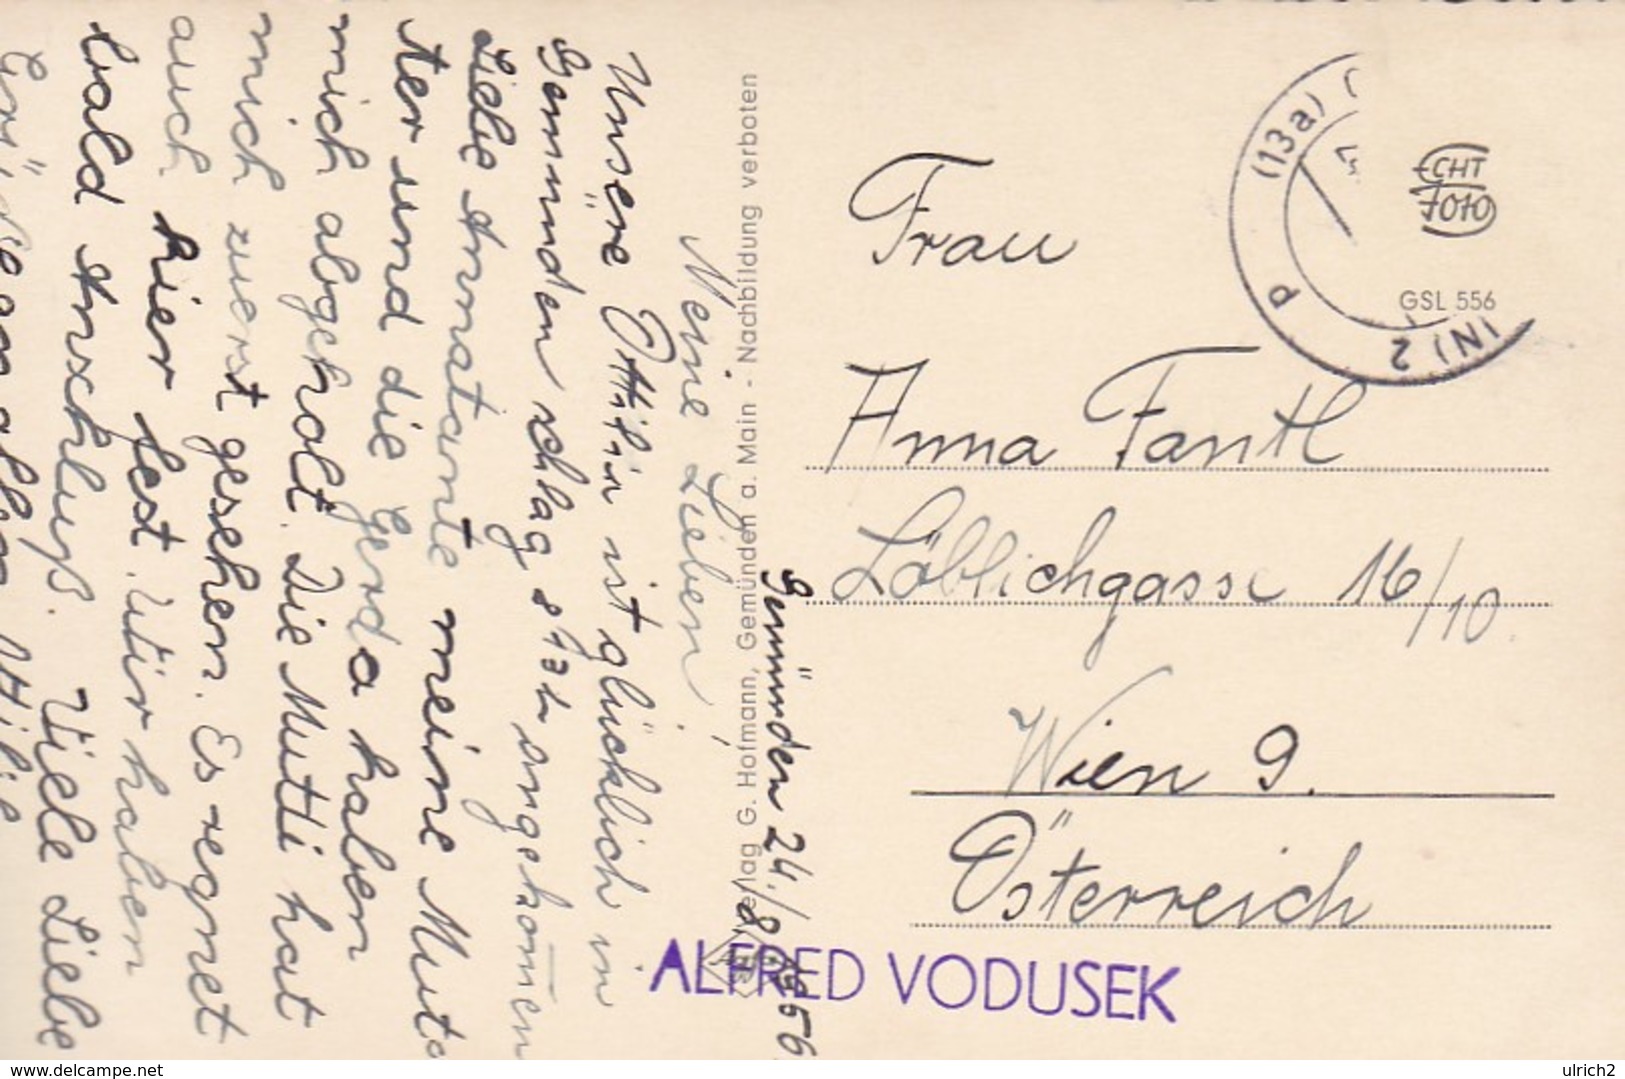 Gemünden 24./8. 1956
Meine Lieben,
Unsere Ottilie ist glücklich in
Gemünden schlag angekommen
Liebe Annatante meine Mut
ter und die Gerda haben
mich abgeholt. Die Mutti hat
mich zuerst gesehen. Es regnet
auch hier fest. Wir haben
bald Anschluß. Viele Liebe
Grüße an allen Ottilie
Verlag G. Hofmann, Gemünden a. Main - Nachbildung verboten
(13a)
2
P
ECHT
FOTO
GSL 556
Frau
Anna Fantl
Löblichgasse 16/10.
Wien 9.
Österreich
ALFRED VODUSEK
www.delcampe.net
ulrich2